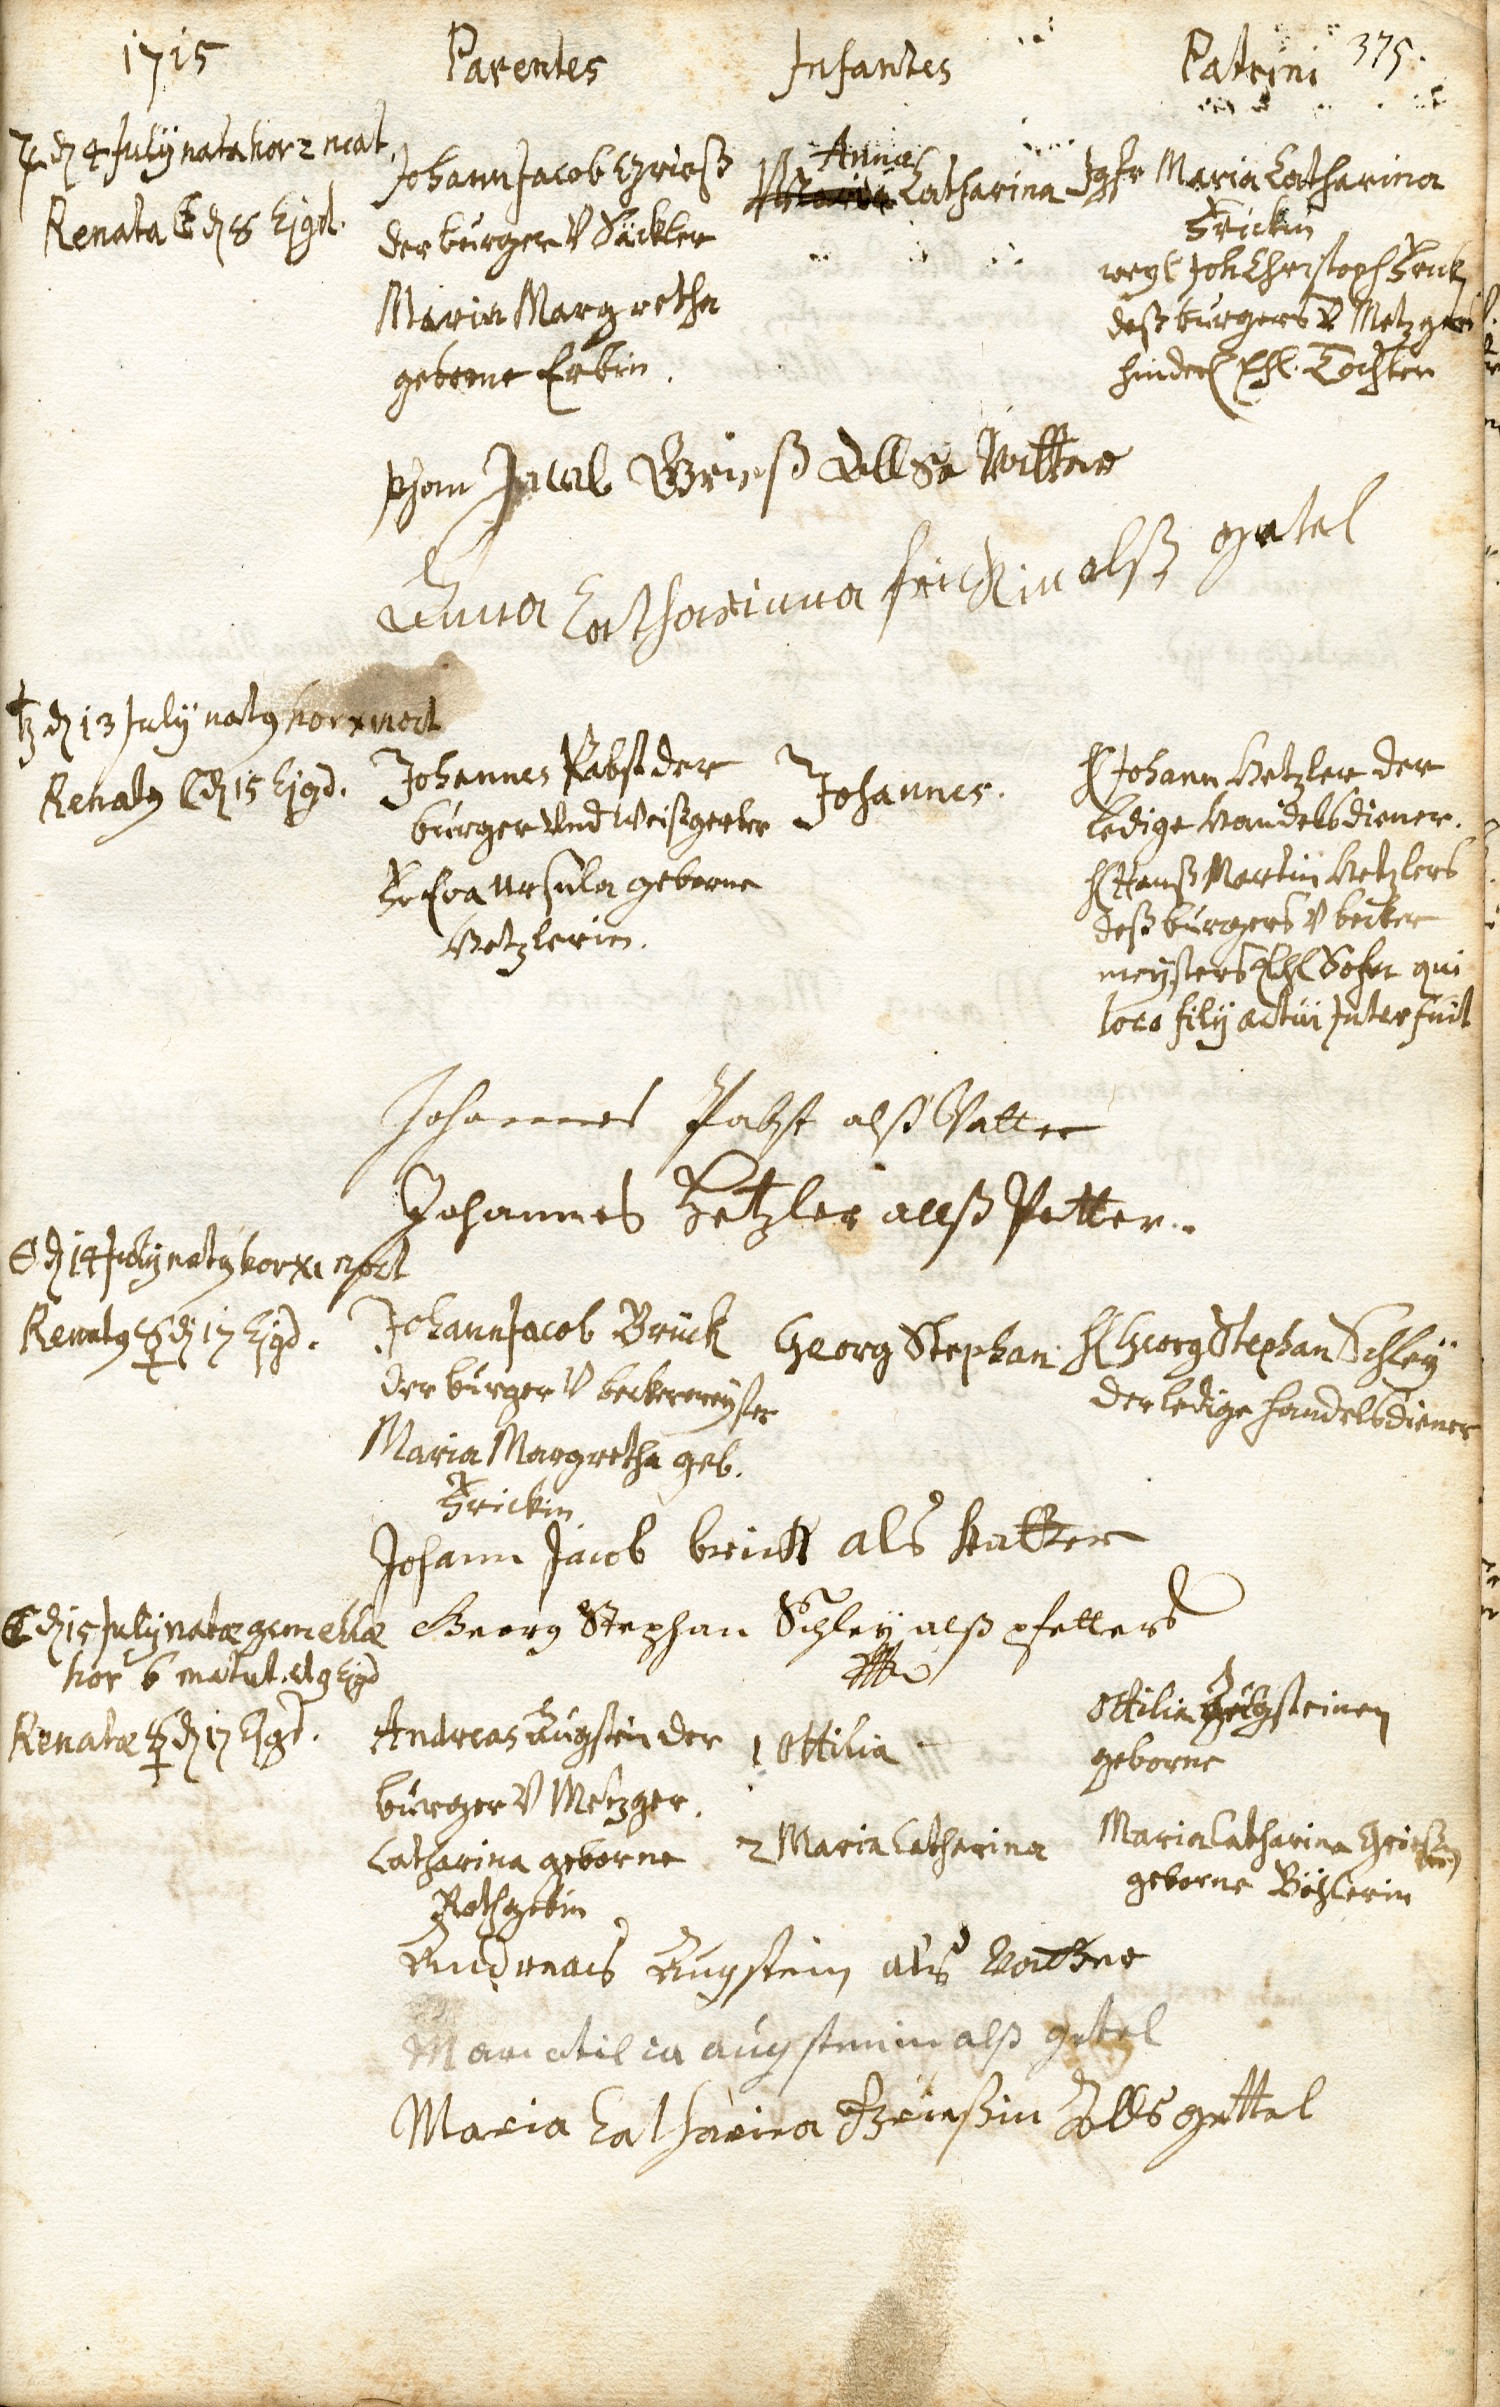 1715
Parentes
Infantes
Patrini 375.
d 4 July nata hor 2 mat.
Renata d 8 Ejgd.
Johann Jacob Grieß
der burger V Säckler
Maria Margretha
geborne Erbin.
Anna
Maria Catharina
Jgfr Maria Catharina
Frickin
weyl Joh Christoph Frick
deß burgers V Metzgers
hinderl Ehl. Tochter
Jacob Grieß Allse Vatter
Anna Catharinna frickin alß getel
d 13 July natq hor x noct
Renatq d 15 Ejgd.
Johannes Pabst der
burger Und Weißgerber
Fr Eva Ursula geborne
Hetzlerin.
Johannes.
H Johann Hetzler der
ledige Handelsdiener.
H Hanß Martin Hetzlers
deß burgers V becker
meysters Ehl Sohn qui
loco filij actui Interfuit
Johannes Pabst alß Vatter
Johannes Hetzler allß Petter.
d 14 July natq hor xi noct
Renatq d 17 Ejgd.
Johann Jacob Brück
der burger V beckermeyster
Maria Margretha geb.
Frickin
Georg Stephan
H Georg Stephan Schley
der ledige handelsdiener
Johann Jacob brück als Vatter
Georg Stephan Schley alß pfetter
d 15 July natæ gemellæ
hor 6 matut. et 9 Ejgd
Renatæ d 17 Ejgd.
Andreas Augstein der
burger V Metzger.
Catharina geborne
Rothgebin
1 Ottilia
2 Maria Catharina
Ottilia Augsteinen
geborne
Maria Catharina Grießin
geborne Böhlerin
Andreas Augstein als Vatter
Mari otilia augsteinin alß getel
Maria Catharina Grießin Alls gettel